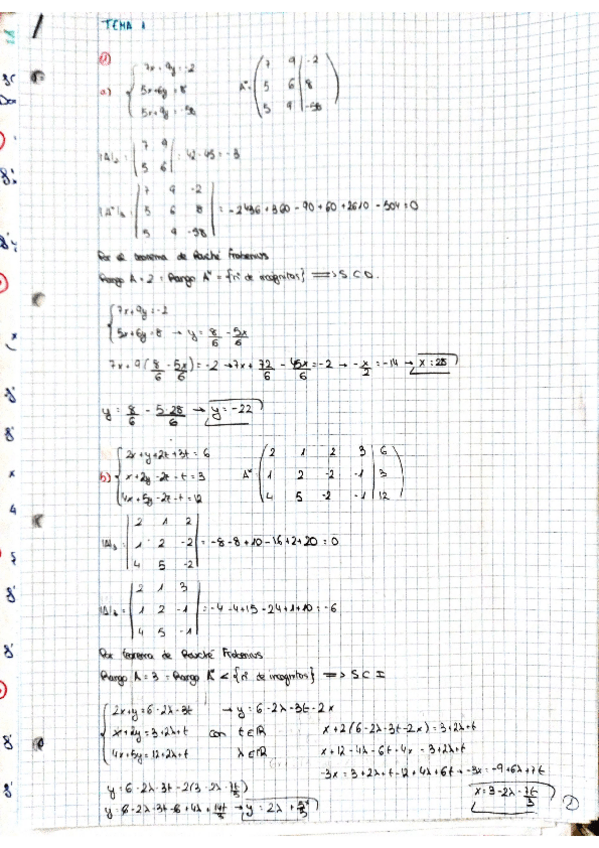 TEMA 1
①
a) { 7x + 9y = -2
5x + 6y = 8
5x + 9y = -58
A* = ( 7 9 | -2
5 6 | 8
5 9 | -58 )
|A|₂ = | 7 9
5 6 | = 42 - 45 = -3
|A*|₃ = | 7 9 -2
5 6 8
5 9 -58 | = -2436 + 360 - 90 + 60 + 2610 - 504 = 0
Por el teorema de Rouché Frobenius
Rango A = 2 = Rango A* = {nº de incognitas} ⟹ S C D.
{ 7x + 9y = -2
5x + 6y = 8 → y = 8/6 - 5x/6
7x + 9(8/6 - 5x/6) = -2 → 7x + 72/6 - 45x/6 = -2 → -x/2 = -14 → x = 28
y = 8/6 - 5·28/6 → y = -22
b) { 2x + y + 2z + 3t = 6
x + 2y - 2z - t = 3
4x + 5y - 2z - t = 12
A* = ( 2 1 2 3 | 6
1 2 -2 -1 | 3
4 5 -2 -1 | 12 )
|A|₃ = | 2 1 2
1 2 -2
4 5 -2 | = -8 - 8 + 10 - 16 + 2 + 20 = 0
|A|₃ = | 2 1 3
1 2 -1
4 5 -1 | = -4 - 4 + 15 - 24 + 1 + 10 = -6
Por teorema de Rouché Frobenius
Rango A = 3 = Rango A* < {nº de incognitas} ⟹ S C I
{ 2x + y = 6 - 2λ - 3t → y = 6 - 2λ - 3t - 2x
x + 2y = 3 + 2λ + t con t∈ℝ x + 2(6 - 2λ - 3t - 2x) = 3 + 2λ + t
4x + 5y = 12 + 2λ + t λ∈ℝ x + 12 - 4λ - 6t - 4x = 3 + 2λ + t
-3x = 3 + 2λ + t - 12 + 4λ + 6t → -3x = -9 + 6λ + 7t
y = 6 - 2λ - 3t - 2(3 - 2λ - 7t/3) x = 3 - 2λ - 7t/3
y = 6 - 2λ - 3t - 6 + 4λ + 14t/3 → y = 2λ + 5t/3